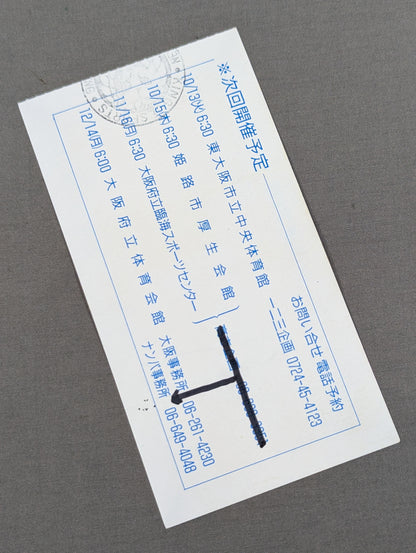 ※次回開催予定
10/13㈫ 6:30 東大阪市立中央体育館
10/15㈭ 6:30 姫路市厚生会館
11/16㈪ 6:30 大阪府立臨海スポーツセンター
12/14㈪ 6:00 大阪府立体育会館
お問い合せ 電話予約
一二三企画 0724-45-4123
大阪事務所 06-261-4230
ナンバ事務所 06-649-4048